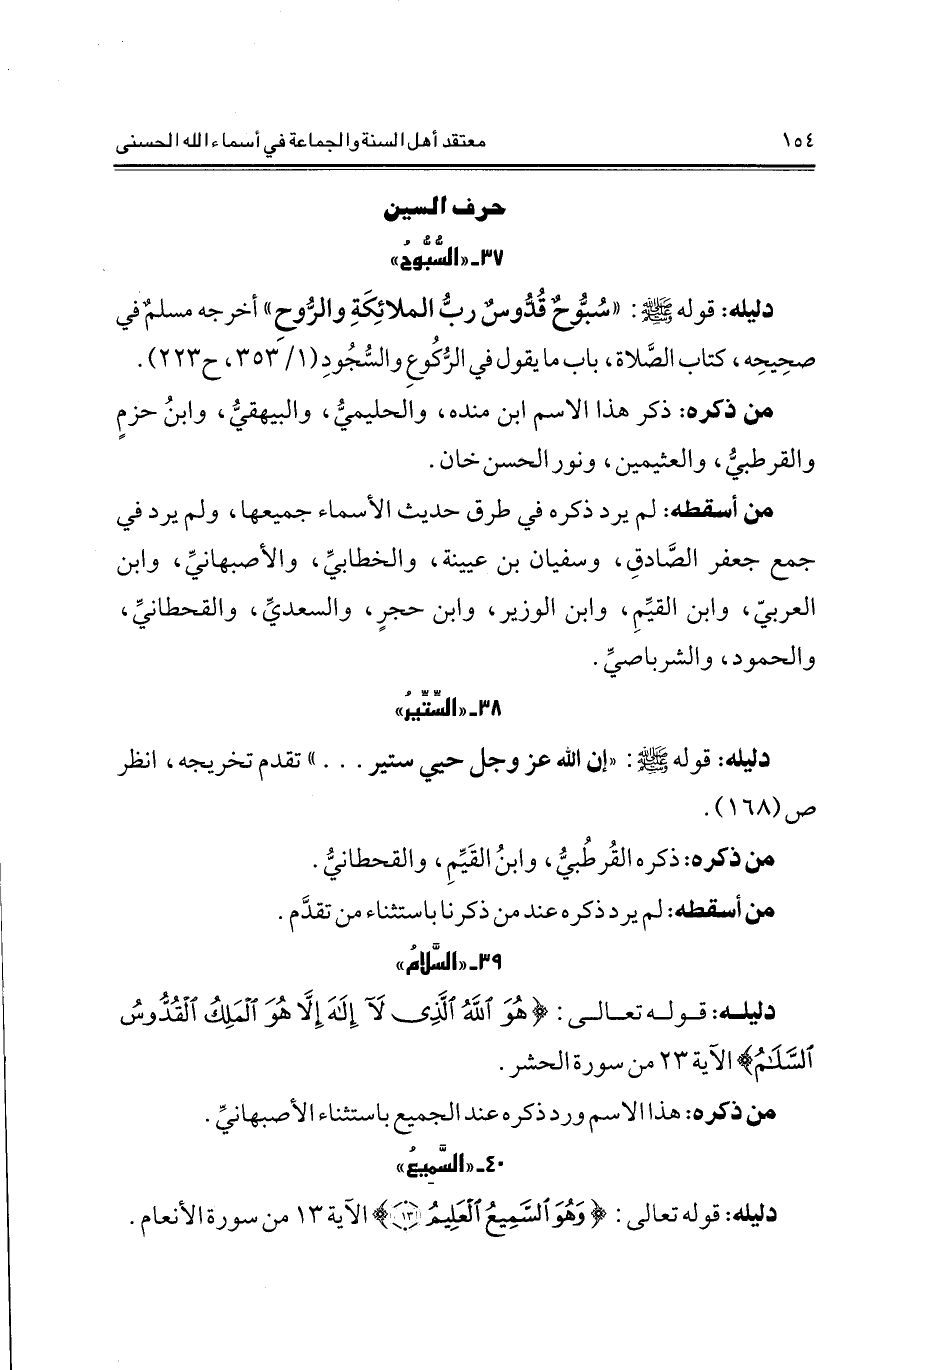 ١٥٤ معتقد أهل السنة والجماعة في أسماء الله الحسنى
حرف السين
٣٧ـ «السُّبُّوحُ»
دليله: قوله ﷺ: «سُبُّوحٌ قُدُّوسٌ ربُّ الملائِكَةِ والرُّوحِ» أخرجه مسلمٌ في
صحيحِه، كتاب الصَّلاة، باب ما يقول في الرُّكُوعِ والسُّجُودِ (١/ ٣٥٣، ح٢٢٣).
من ذكره: ذكر هذا الاسم ابن منده، والحليميُّ، والبيهقيُّ، وابنُ حزمٍ
والقرطبيُّ، والعثيمين، ونور الحسن خان.
من أسقطه: لم يرد ذكره في طرق حديث الأسماء جميعها، ولم يرد في
جمع جعفر الصَّادقِ، وسفيان بن عيينة، والخطابيِّ، والأصبهانيِّ، وابن
العربيّ، وابن القيِّمِ، وابن الوزير، وابن حجرٍ، والسعديِّ، والقحطانيِّ،
والحمود، والشرباصيِّ.
٣٨ـ «السِّتِّيرُ»
دليله: قوله ﷺ: «إن الله عز وجل حيي ستير . . .» تقدم تخريجه، انظر
ص(١٦٨).
من ذكره: ذكره القُرطُبيُّ، وابنُ القَيِّمِ، والقحطانيُّ.
من أسقطه: لم يرد ذكره عند من ذكرنا باستثناء من تقدَّم.
٣٩ـ «السَّلامُ»
دليله: قوله تعالى: ﴿هُوَ ٱللَّهُ ٱلَّذِى لَآ إِلَٰهَ إِلَّا هُوَ ٱلْمَلِكُ ٱلْقُدُّوسُ
ٱلسَّلَٰمُ﴾ الآية ٢٣ من سورة الحشر.
من ذكره: هذا الاسم ورد ذكره عند الجميع باستثناء الأصبهانيِّ.
٤٠ـ «السَّميعُ»
دليله: قوله تعالى: ﴿وَهُوَ ٱلسَّمِيعُ ٱلْعَلِيمُ ١٣﴾ الآية ١٣ من سورة الأنعام.